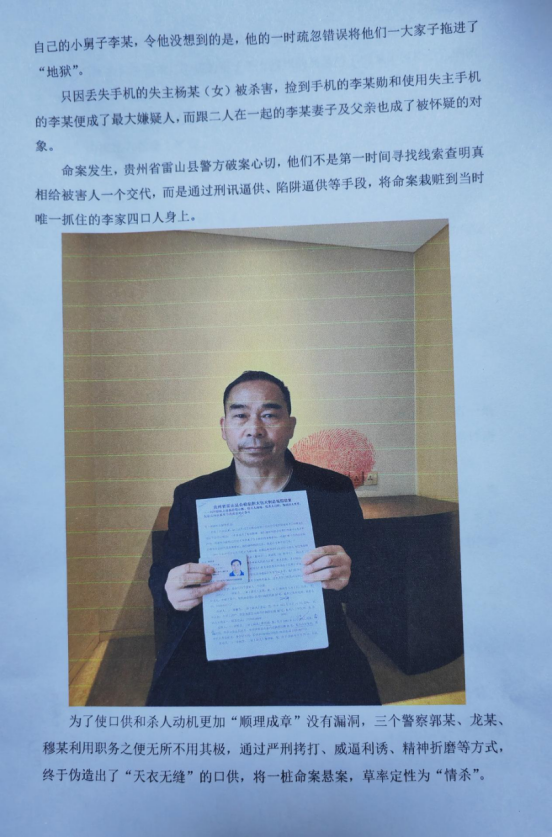 自己的小舅子李某，令他没想到的是，他的一时疏忽错误将他们一大家子拖进了
“地狱”。
只因丢失手机的失主杨某（女）被杀害，捡到手机的李某勋和使用失主手机
的李某便成了最大嫌疑人，而跟二人在一起的李某妻子及父亲也成了被怀疑的对
象。
命案发生，贵州省雷山县警方破案心切，他们不是第一时间寻找线索查明真
相给被害人一个交代，而是通过刑讯逼供、陷阱逼供等手段，将命案栽赃到当时
唯一抓住的李家四口人身上。
为了使口供和杀人动机更加“顺理成章”没有漏洞，三个警察郭某、龙某、
穆某利用职务之便无所不用其极，通过严刑拷打、威逼利诱、精神折磨等方式，
终于伪造出了“天衣无缝”的口供，将一桩命案悬案，草率定性为“情杀”。